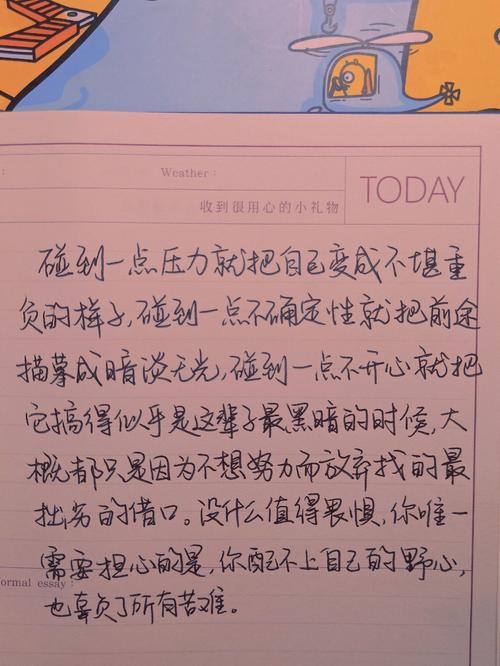 Weather:
TODAY
收到很用心的小礼物
碰到一点压力就把自己变成不堪重
负的样子,碰到一点不确定性就把前途
描摹成暗淡无光,碰到一点不开心就把
它搞得似乎是这辈子最黑暗的时候,大
概都只是因为不想努力而放弃找的最
拙劣的借口。没什么值得畏惧,你唯一
需要担心的是,你配不上自己的野心,
ormal essay:
也辜负了所有苦难。